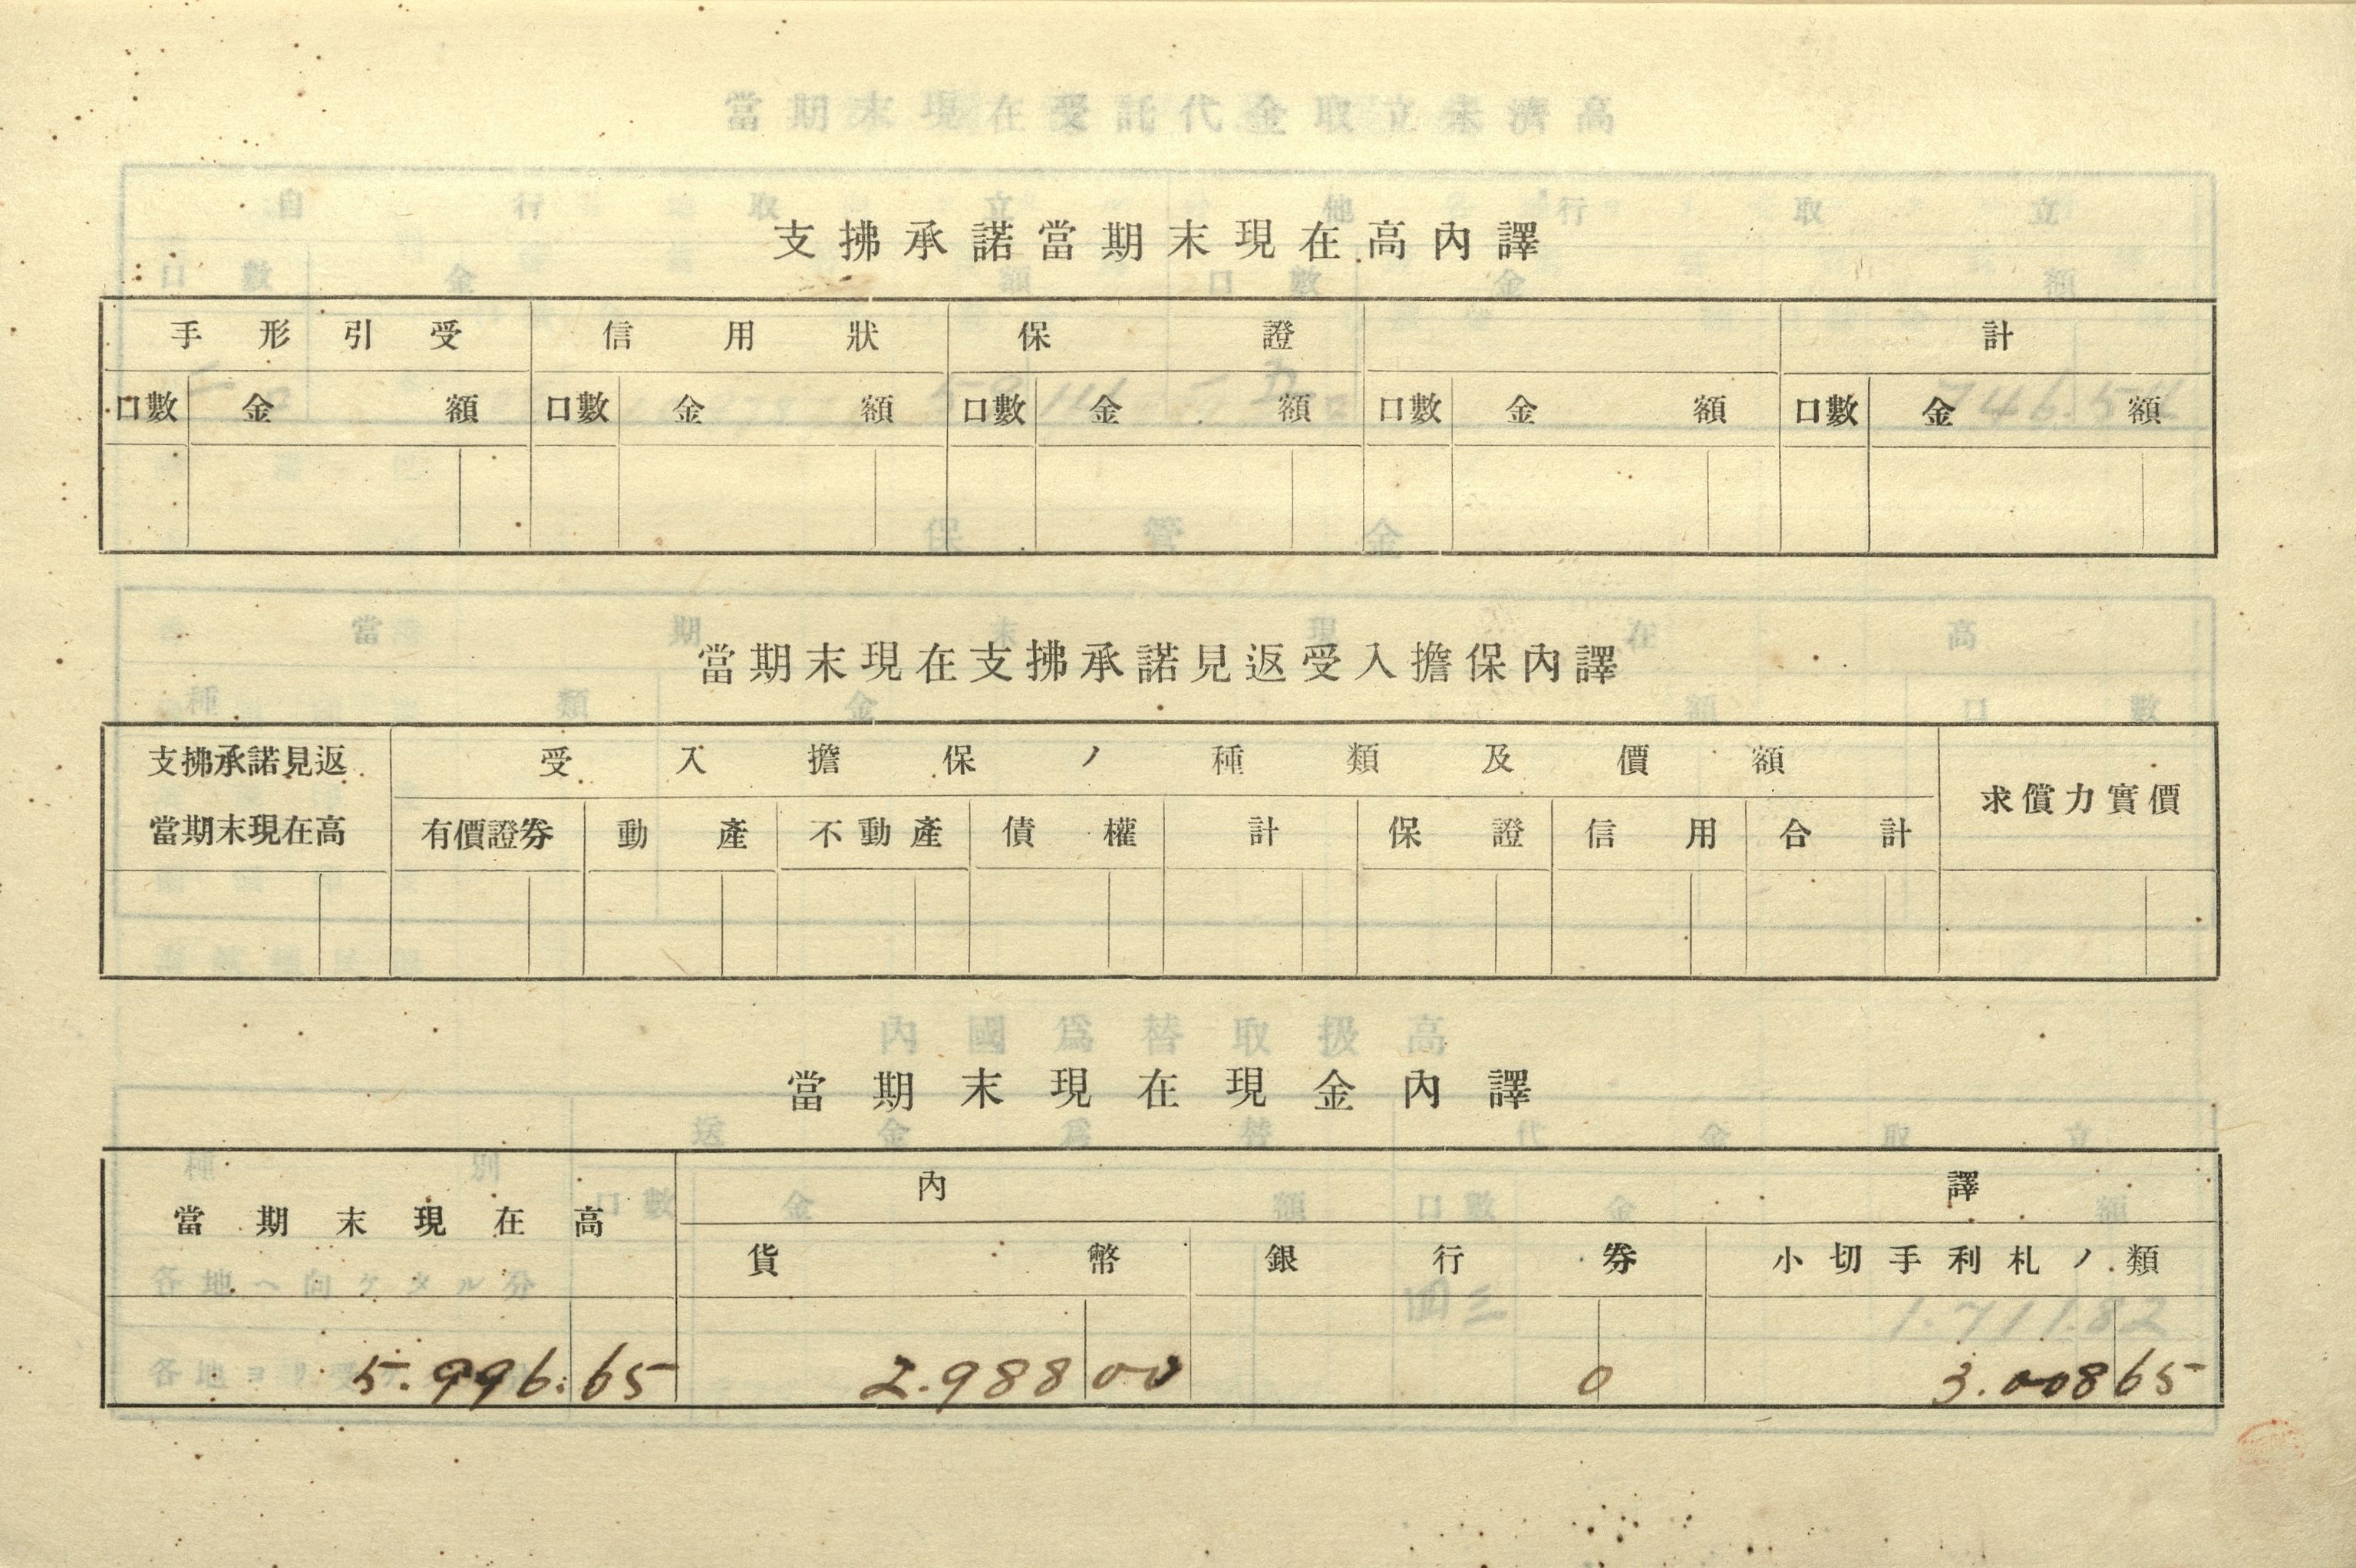 支拂承諾當期末現在高內譯
手形引受 信用狀 保證 計
口數 金額 口數 金額 口數 金額 口數 金額 口數 金額
當期末現在支拂承諾見返受入擔保內譯
支拂承諾見返 受入擔保ノ種類及價額 求償力實價
當期末現在高 有價證券 動產 不動產 債權 計 保證 信用 合計
當期末現在現金內譯
當期末現在高 內譯
貨幣 銀行券 小切手利札ノ類
5.996.65 2.988 00 0 3.008 65